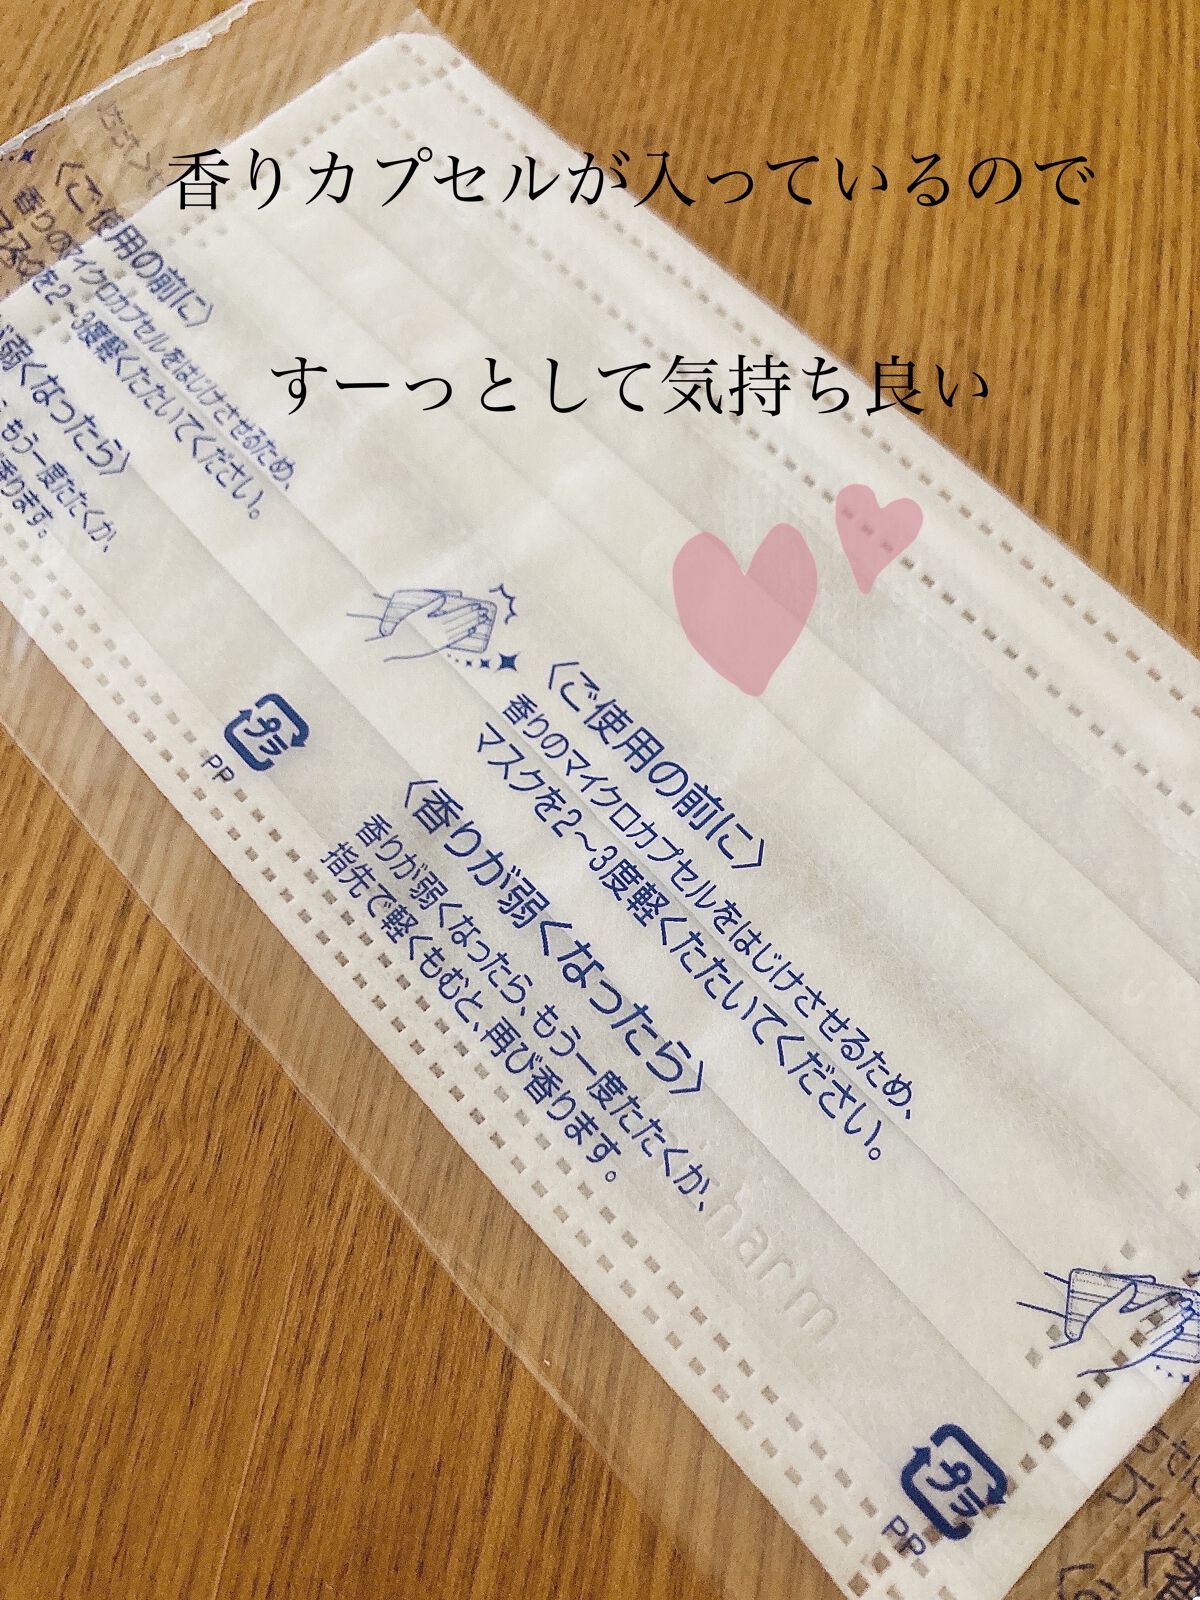 香りカプセルが入っているので
すーっとして気持ち良い
〈ご使用の前に〉
香りのマイクロカプセルをはじけさせるため、
マスクを2〜3度軽くたたいてください。
が弱くなったら〉
もう一度たたくか、
香ります。
プラ
PP
〈ご使用の前に〉
香りのマイクロカプセルをはじけさせるため、
マスクを2〜3度軽くたたいてください。
〈香りが弱くなったら〉
香りが弱くなったら、もう一度たたくか、
指先で軽くもむと、再び香ります。
harm
プラ
PP